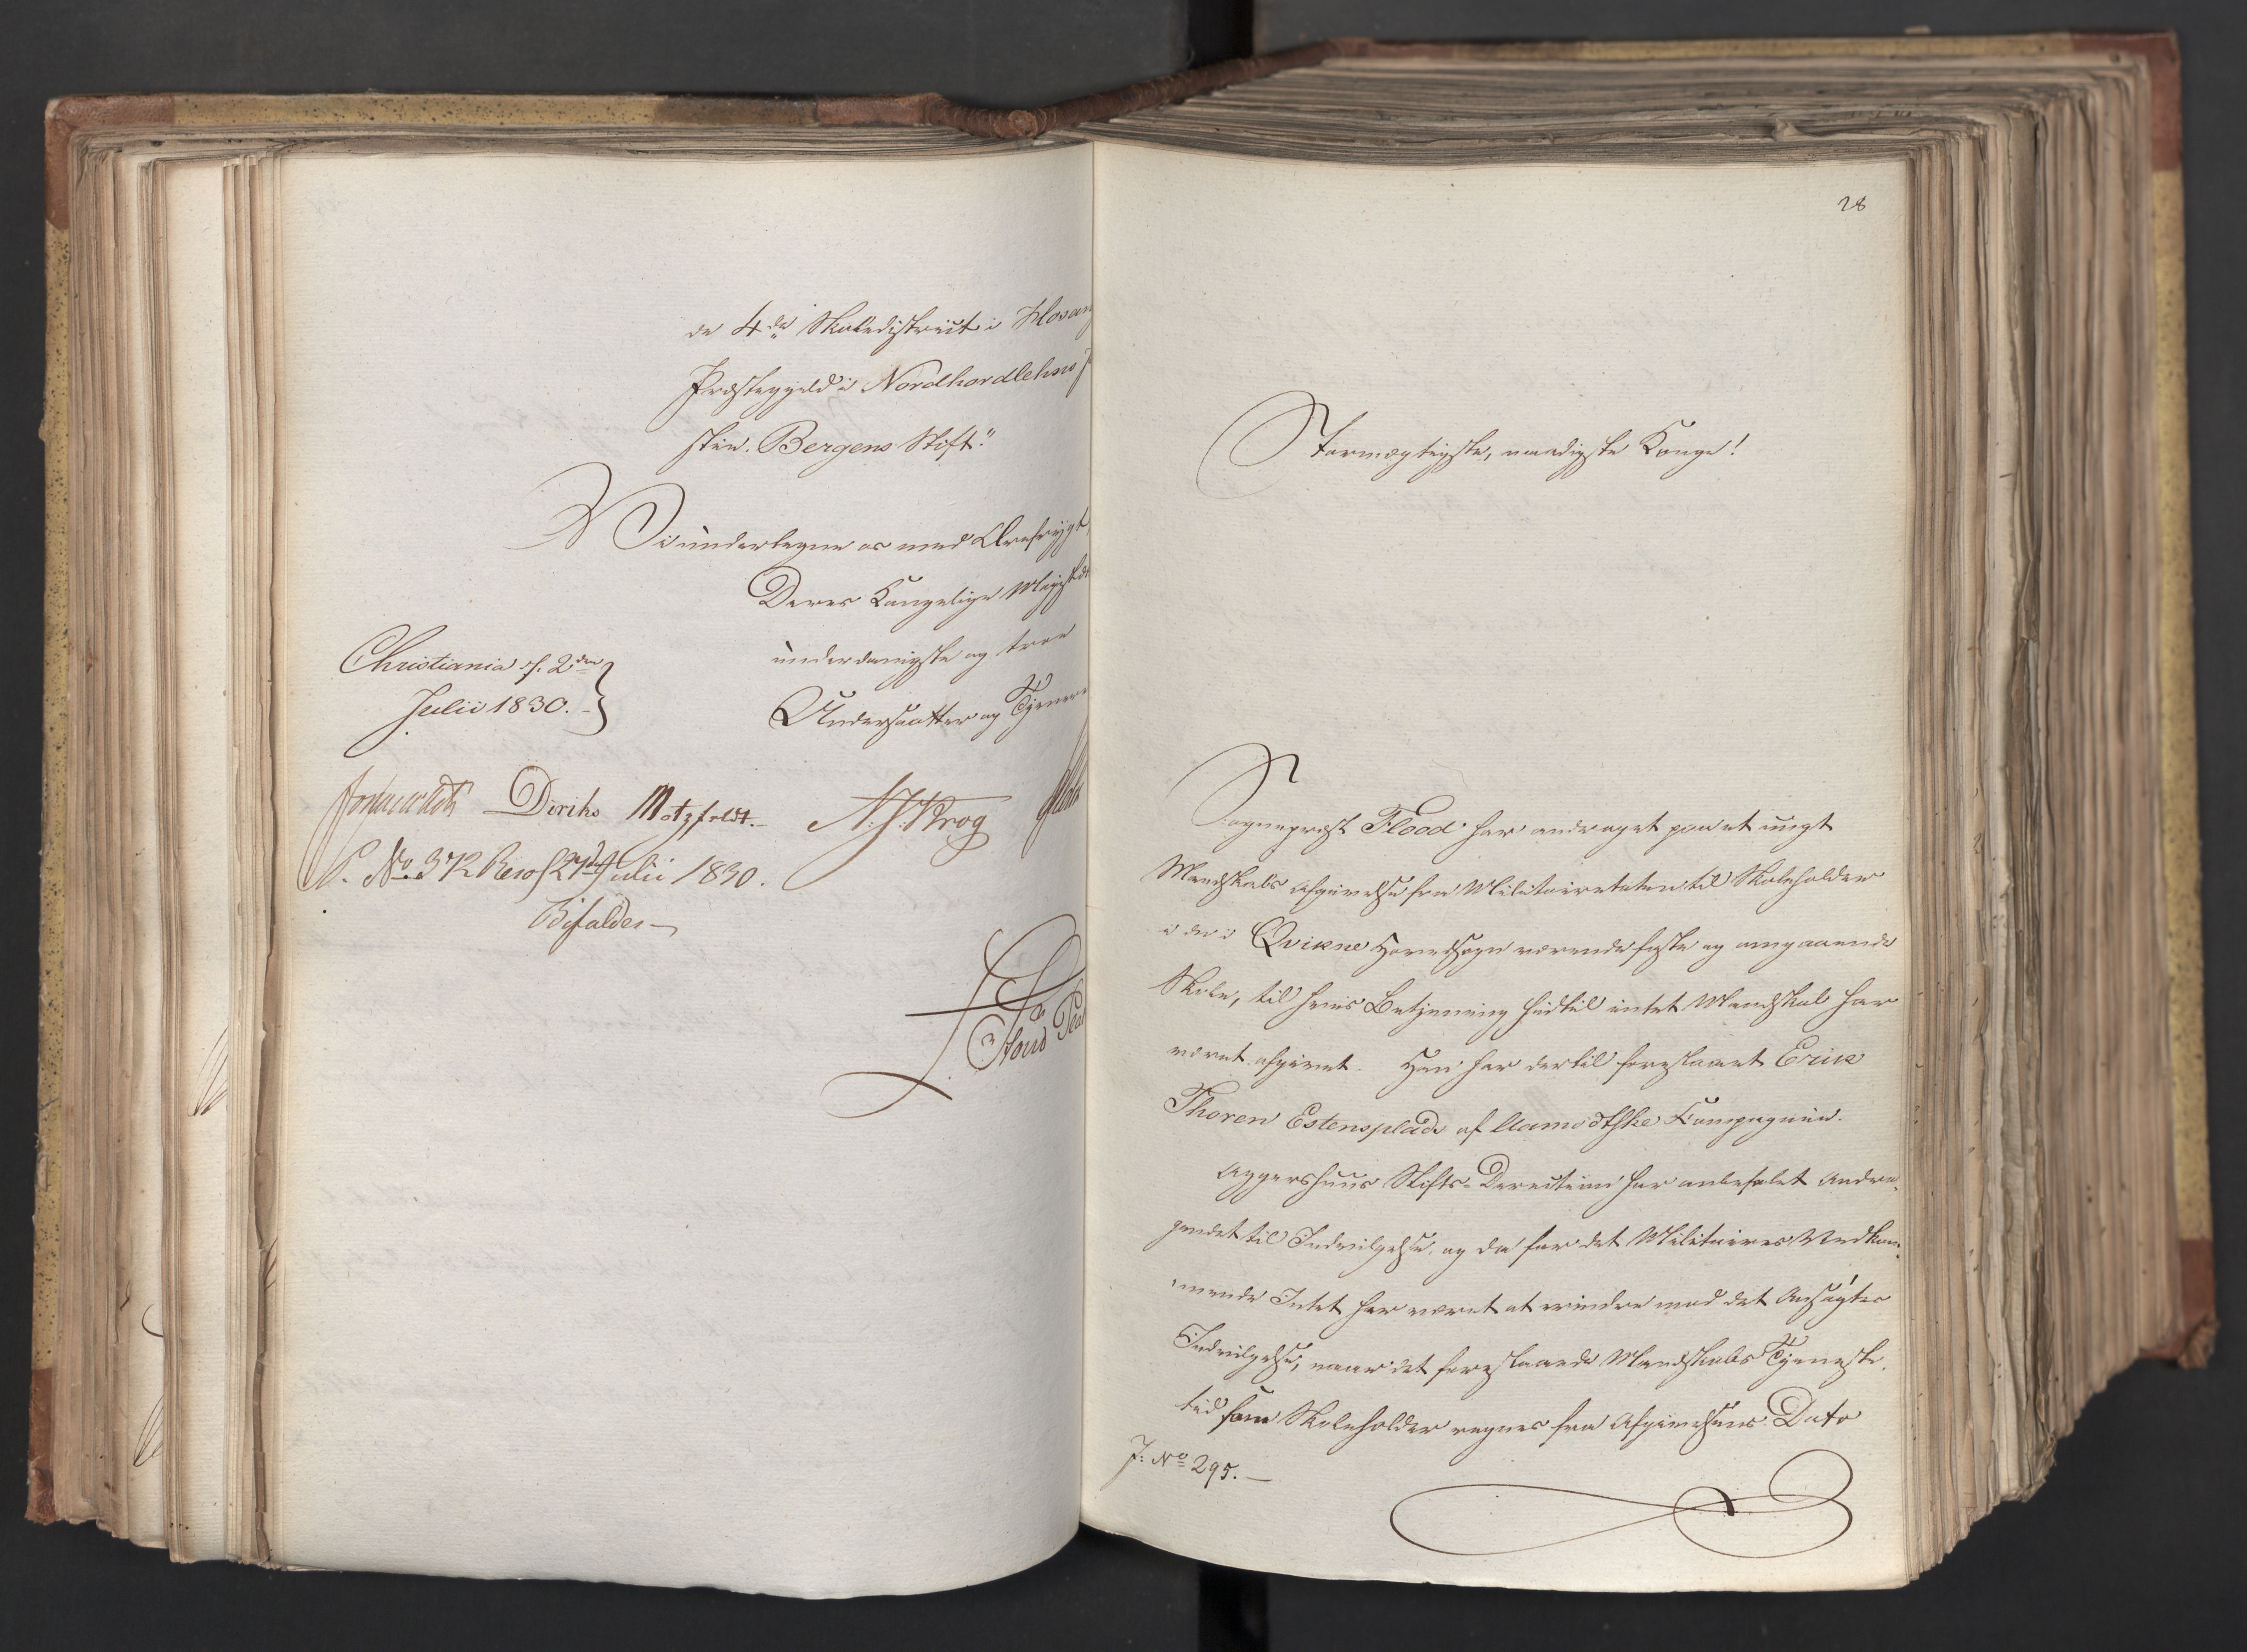 de 4de Skoledistrict i Hosan
Præstegjeld i Nordhordlehns
stie. Bergens Stift."
Vi undertegne os med Ærefrygt
Deres Kongelige Majestæt
underdanigste og troe
Undersaatter og Tjenere
Christiania d. 2den
Julii 1830.
Diriks Motzfeldt. N. J. Krog
P. No 372 Reso f 27d Julii 1830.
Bifaldes
28
Stormægtigste, naadigste Konge!
Sogneprest Flood har andraget paa et ungt
Mandskabs Afgivelse fra Militairetaten til Skoleholder
i de i Qvikne Hovedsogn værende faste og omgaaende
Skole, til hvis Betjening hidtil intet Mandskab har
været afgivet. Han har dertil foreslaaet Erik
Thoren Estensplads af Aamodtske Kompagnie.
Aggershuus Stifts-Direction har anbefalet Andra-
gendet til Indvilgelse, og da for det Militaires Vedkom-
mende Intet har været at erindre mod det Ansøgtes
Indvilgelse, naar det foreslaaede Mandskabs Tjeneste-
tid som Skoleholder regnes fra Afgivelsens Dato
J: No 295.